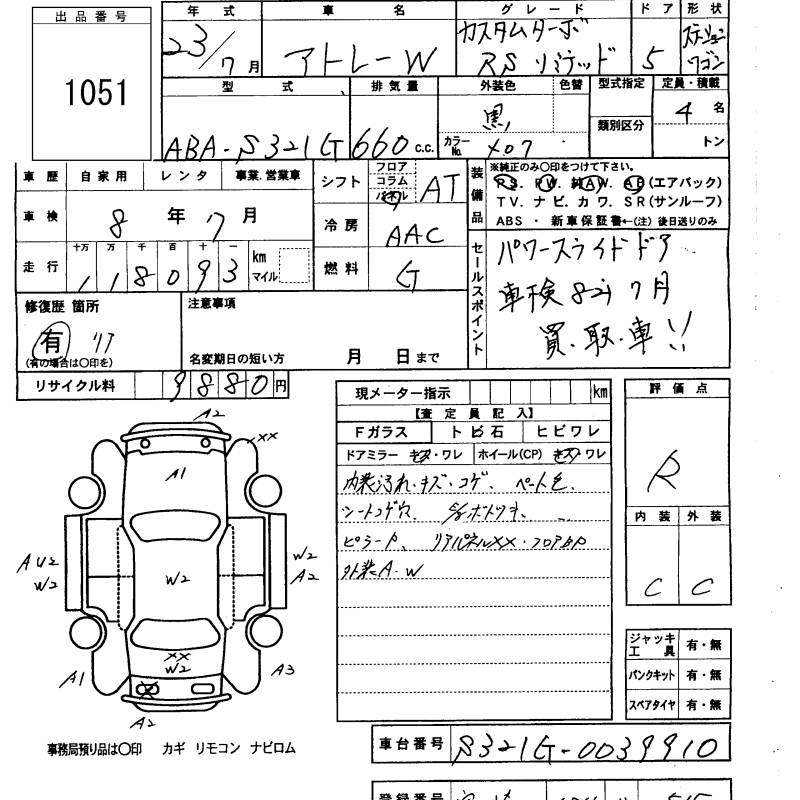 出品番号
1051
年式 車名 グレード ドア 形状
23/7月 アトレーW カスタムターボ RS リミテッド 5 ステーションワゴン
型式 排気量 外装色 色替 型式指定 定員・積載
ABA-S321G 660 c.c. 黒 類別区分 4 名
カラーNo. X07 トン
車歴 自家用 レンタ 事業.営業車
車検 8年7月
走行 十万 万 千 百 十 一
118093 km マイル
シフト フロア コラム パネル AT
冷房 AAC
燃料 G
装備品 ※純正のみ〇印をつけて下さい。
PS. PW. 純AW. AB(エアバック)
TV. ナビ. カワ. SR(サンルーフ)
ABS ・ 新車保証書←(注) 後日送りのみ
セールスポイント
パワースライドドア
車検 8年7月
買.取.車!!
修復歴 箇所
有 リア
(有の場合は〇印を)
注意事項
名変期日の短い方 月 日まで
リサイクル料 9880円
現メーター指示 km
【査定員記入】
Fガラス トビ石 ヒビワレ
ドアミラー キズ・ワレ ホイール(CP) キズ・ワレ
内装汚れ・キズ・コゲ、
シートコゲ穴、
ピラーP、リアパネルXX・フロアP
外装A.W
評価点
R
内装 外装
C C
ジャッキ工具 有・無
パンクキット 有・無
スペアタイヤ 有・無
A2
XX
A1
AU2
W2
W2
W2
A2
XX
W2
A1
A3
A2
事務局預り品は〇印 カギ リモコン ナビロム
車台番号 S321G-0039910
登録番号